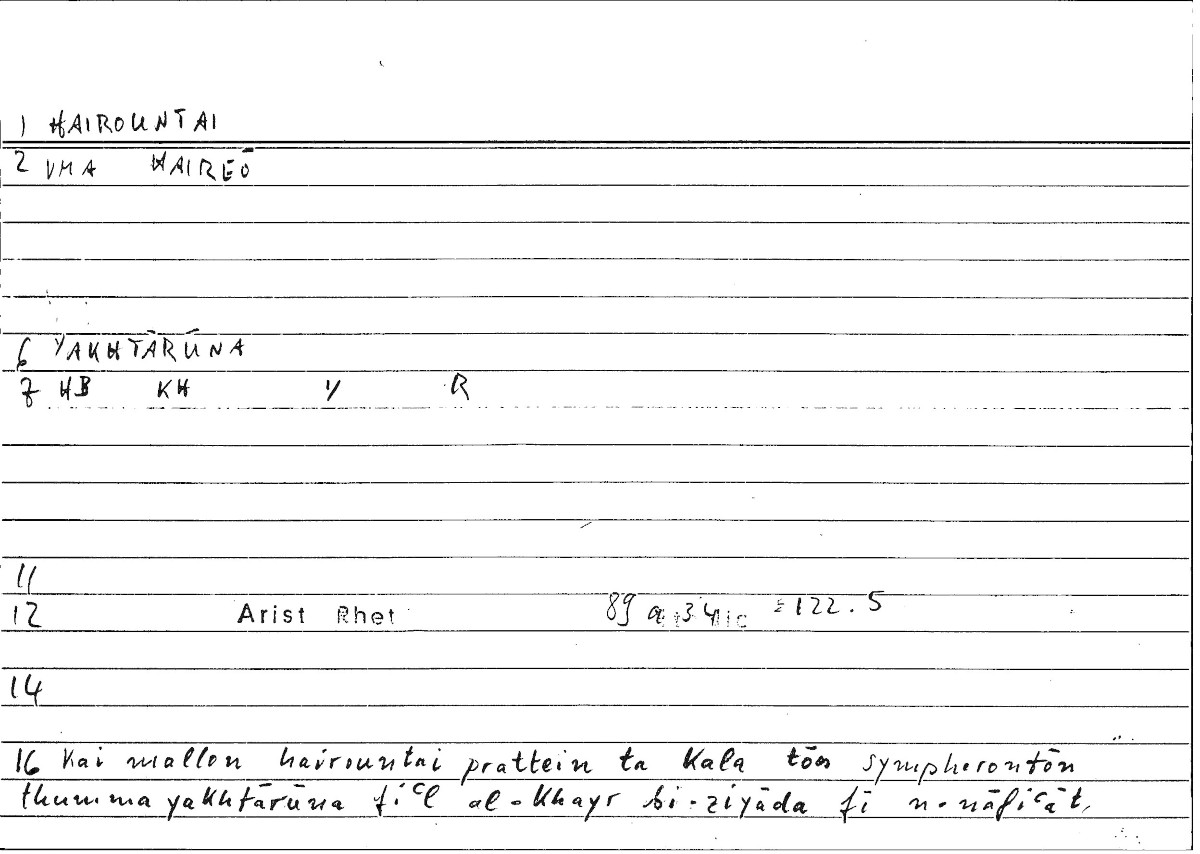 1 HAIROUNTAI
2 VMA HAIREŌ
6 YAKHTĀRŪNA
7 HB KH Y R
11
12 Arist Rhet 89 a 34 = 122.5
14
16 Kai mallon hairountai prattein ta Kala tōn sympherontōn
thumma yakhtārūna fiᶜl al-Khayr bi-ziyāda fī n-nāfiᶜāt.